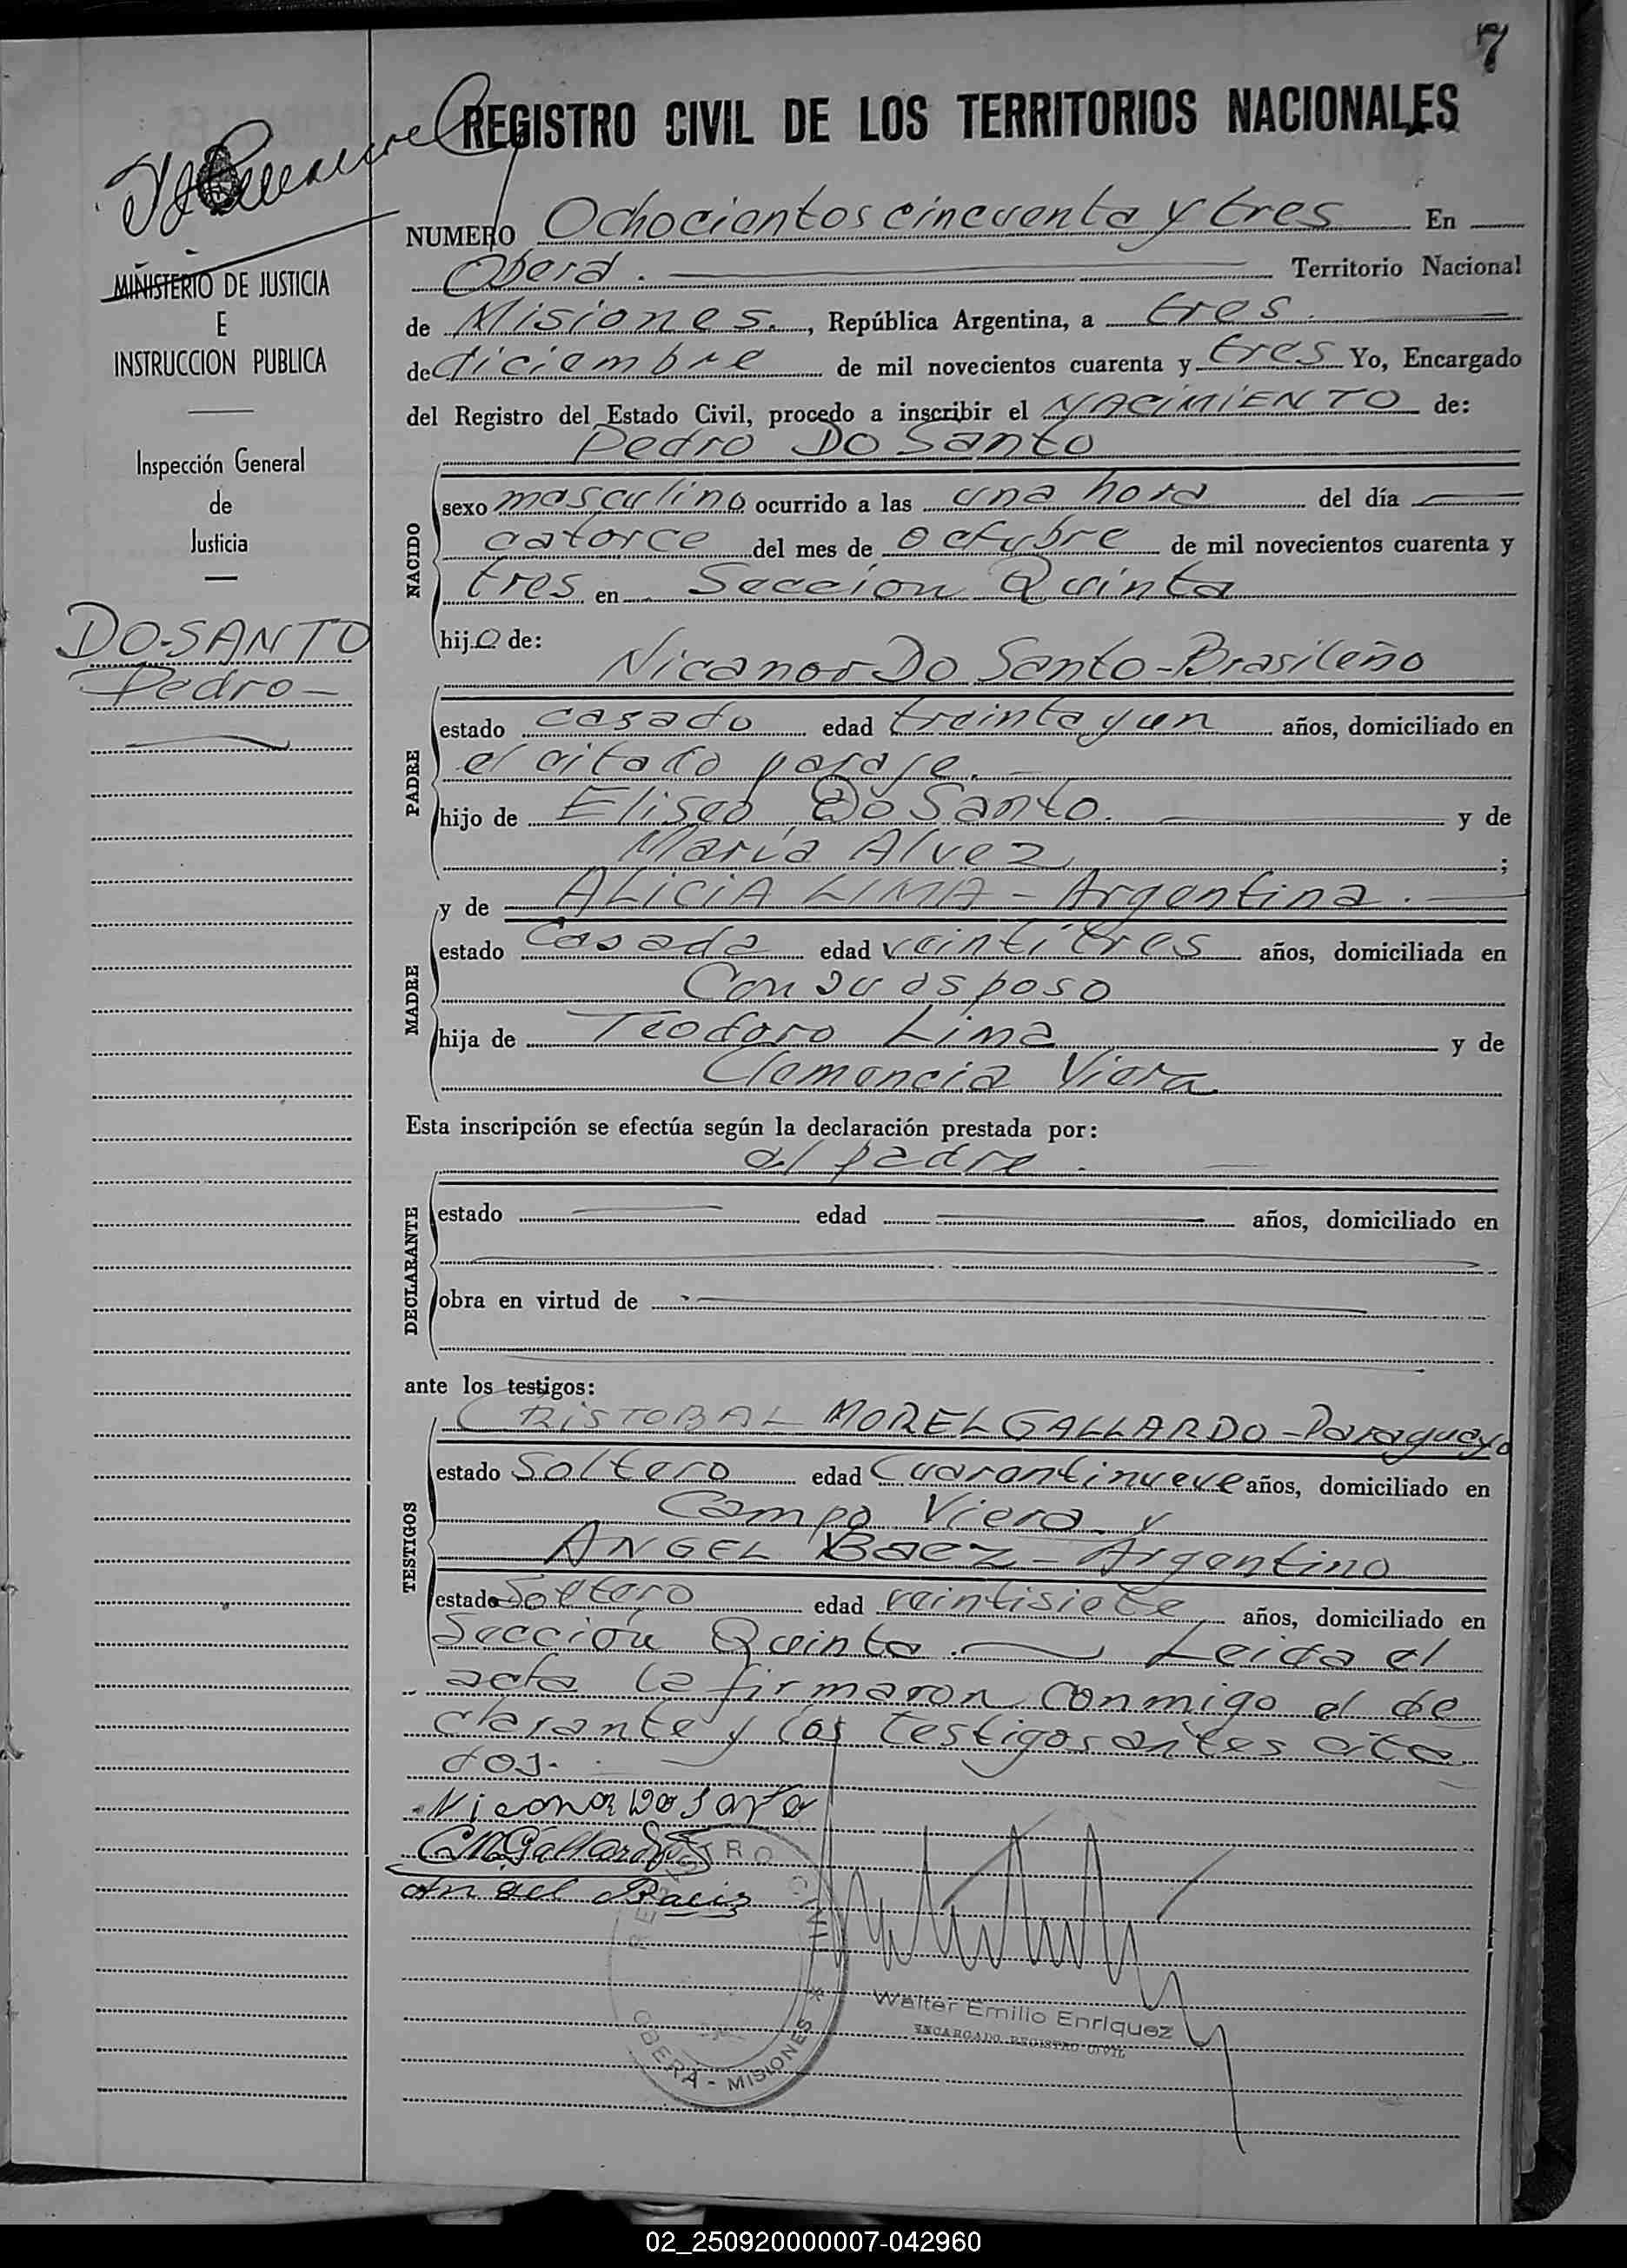 7
REGISTRO CIVIL DE LOS TERRITORIOS NACIONALES
NUMERO Ochocientos cincuenta y tres En
Oberá. Territorio Nacional
de Misiones., República Argentina, a tres
de diciembre de mil novecientos cuarenta y tres Yo, Encargado
del Registro del Estado Civil, procedo a inscribir el NACIMIENTO de:
Pedro Do Santo
sexo masculino ocurrido a las una hora del día
catorce del mes de octubre de mil novecientos cuarenta y
tres en Seccion Quinta
hijo de:
Nicanor Do Santo - Brasileño
estado casado edad treinta y un años, domiciliado en
el citado paraje.
hijo de Eliseo Do Santo. y de
María Alvez ;
y de ALICIA LIMA - Argentina.
estado Casada edad veintitres años, domiciliada en
Con su esposo
hija de Teodoro Lima y de
Clemencia Viera
Esta inscripción se efectúa según la declaración prestada por:
el padre.
estado edad años, domiciliado en
obra en virtud de
ante los testigos:
CRISTOBAL MOREL GALLARDO - Paraguayo
estado Soltero edad Cuarentinueve años, domiciliado en
Campo Viera y
ANGEL Baez - Argentino
estado Soltero edad veintisiete años, domiciliado en
Seccion Quinta. Leida el
acta la firmaron conmigo el de
clarante y los testigos antes cita
dos.
Nicanor Do Santo
C M Gallardo
Angel Baez
REGISTRO CIVIL
OBERÁ - MISIONES
Walter Emilio Enriquez
ENCARGADO REGISTRO CIVIL
MINISTERIO DE JUSTICIA
E
INSTRUCCION PUBLICA
Inspección General
de
Justicia
DO-SANTO
Pedro-
NACIDO
PADRE
MADRE
DECLARANTE
TESTIGOS
02_250920000007-042960